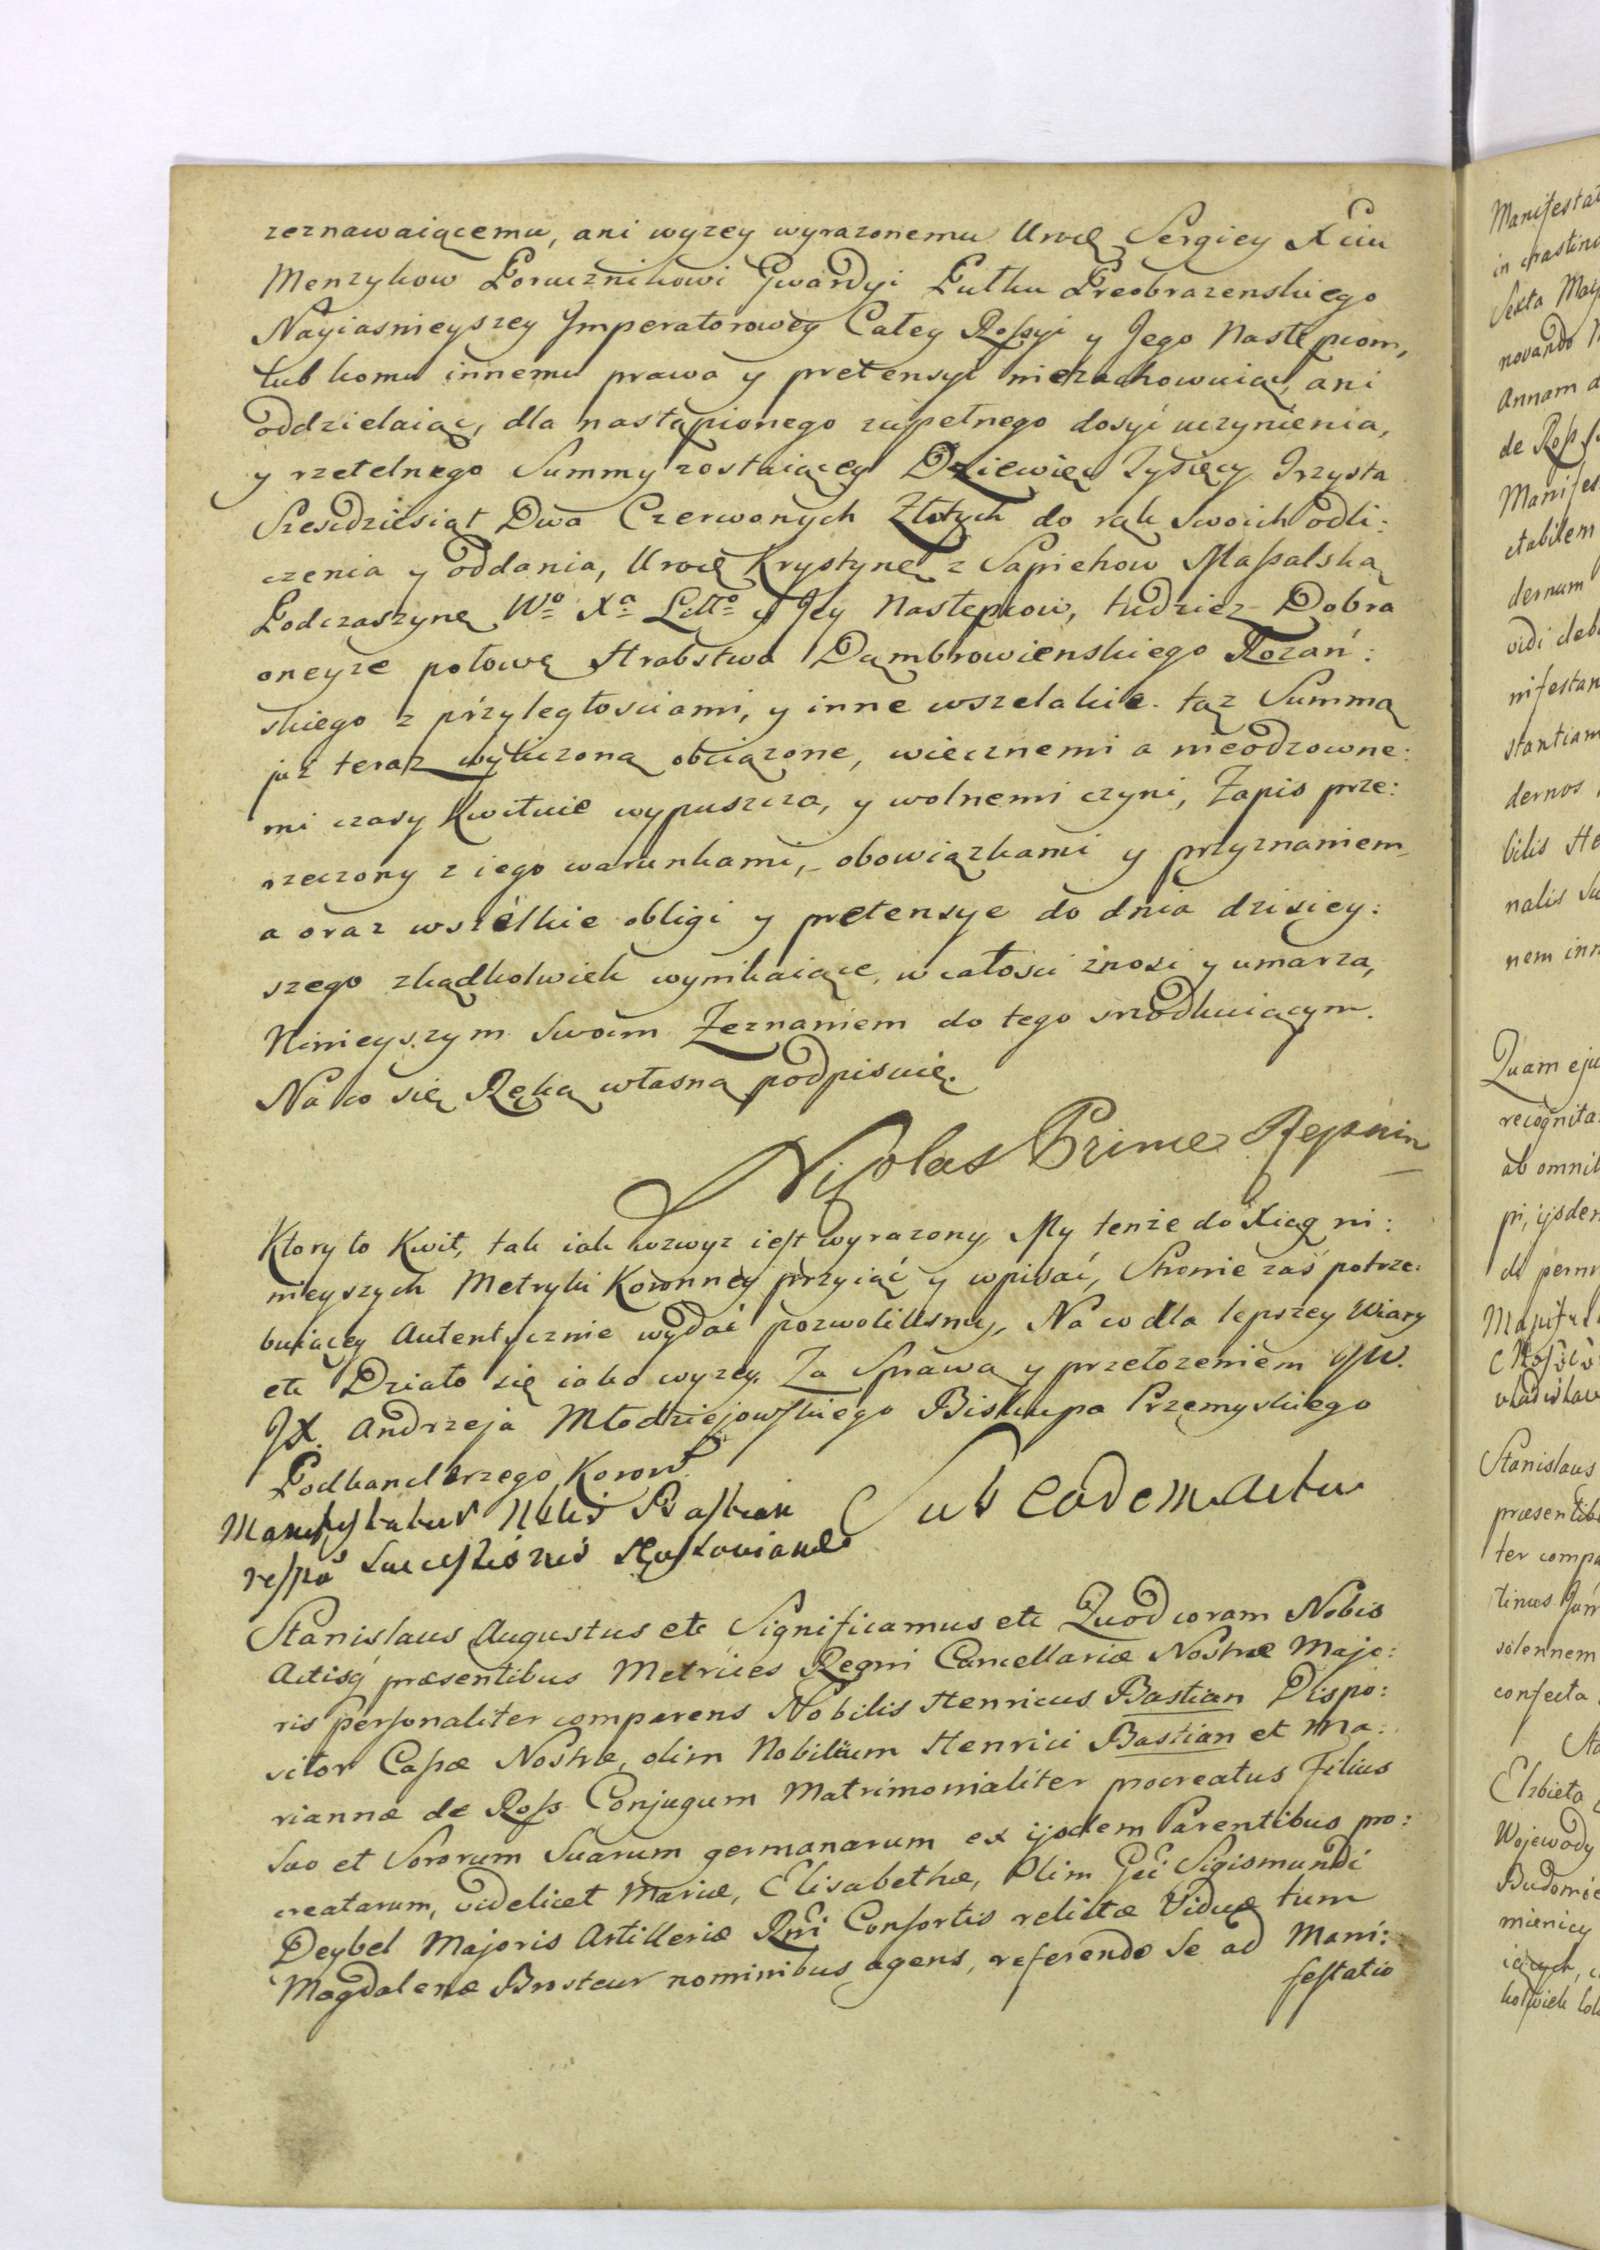 zeznawaiącemu, ani wyzey wyrazonemu Urodę Sergiey Xciu
Menzykow Porucznikowi Gwardyi Pułku Preobrazenskiego
Nayiasnieyszey Imperatorowey Całey Rossyi y Jego Nastęcom,
lub komu innemu prawa y pretensyi niezachowuiąc, ani
oddzielaiąc, dla nastąpionego zupełnego dosyć uczynienia,
y rzetelnego Summy zostaiącey Dziewięc Tysięcy Trzysta
Szesdziesiąt Dwa Czerwonych Złotych do rąk Swoich odli:
czenia y oddania, Urodę Krystynę z Sapiehow Massalską
Podczaszynę Wo Xa Litto y Jey Nastepcow, tudziez Dobra
oneyze połowę Hrabstwa Dąmbrowienskiego Rozań:
skiego z przyległosciami, y inne wszelakie tąz Summą
już teraz wyliczoną obciązone, wiecznemi a nieodzowne:
mi czasy kwituie wypuszcza, y wolnemi czyni, Zapis prze:
rzeczony z iego warunkami, obowiązkami y przyznaniem,
a oraz wszelkie obligi y pretensye do dnia dzisiey:
szego zkądkolwiek wynikaiące, w całosci znosi y umarza,
Ninieyszym Swoim Zeznaniem do tego srzodkuiącym.
Na co się Ręką własną podpisuię.
Nicolas Prince Repnin
Ktory to Kwit, tak iak wzwyz iest wyrazony, My tenze do Xiąg ni:
nieyszych Metryki Koronney przyiąć y wpisać, Stronie zaś potrze:
buiącey Autentycznie wydać pozwolilismy, Na co dla lepszey Wiary
etc Działo się iako wyzey. Za Sprawą y przełozeniem JW.
JX. Andrzeja Młodziejowskiego Biskupa Przemyskiego
Podkanclerzego Koron.
Manifestatur Nblis Bastian
resptu Successionis Rossovianae
Sub eodem actu
Stanislaus Augustus etc Significamus etc Quod coram Nobis
Actisq praesentibus Metrices Regni Cancellariae Nostrae Majo:
ris personaliter comparens Nobilis Henricus Bastian Dispo:
sitor Capae Nostrae, olim Nobilium Henrici Bastian et Ma:
riannae de Ross Conjugum Matrimonialiter procreatus Filius
Suo et Sororum Suarum germanarum ex ijsdem Parentibus pro:
creatarum, videlicet Mariae, Elisabethae, Olim Gsi Sigismundi
Deybel Majoris Artilleriae Rni Consortis relictae Viduae tum
Magdalenae Brosteur nominibus agens, referendo Se ad Mani:
festatio